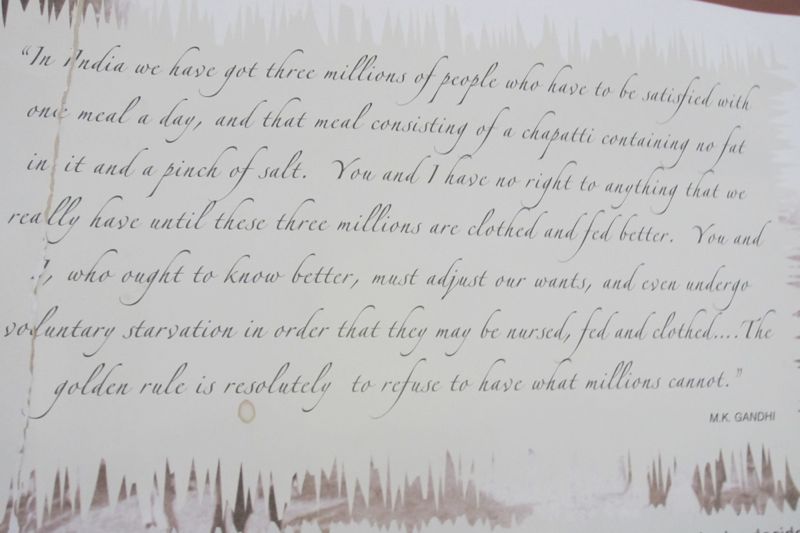 "In India we have got three millions of people who have to be satisfied with
one meal a day, and that meal consisting of a chapatti containing no fat
in it and a pinch of salt. You and I have no right to anything that we
really have until these three millions are clothed and fed better. You and
I, who ought to know better, must adjust our wants, and even undergo
voluntary starvation in order that they may be nursed, fed and clothed....The
golden rule is resolutely to refuse to have what millions cannot."
M.K. GANDHI